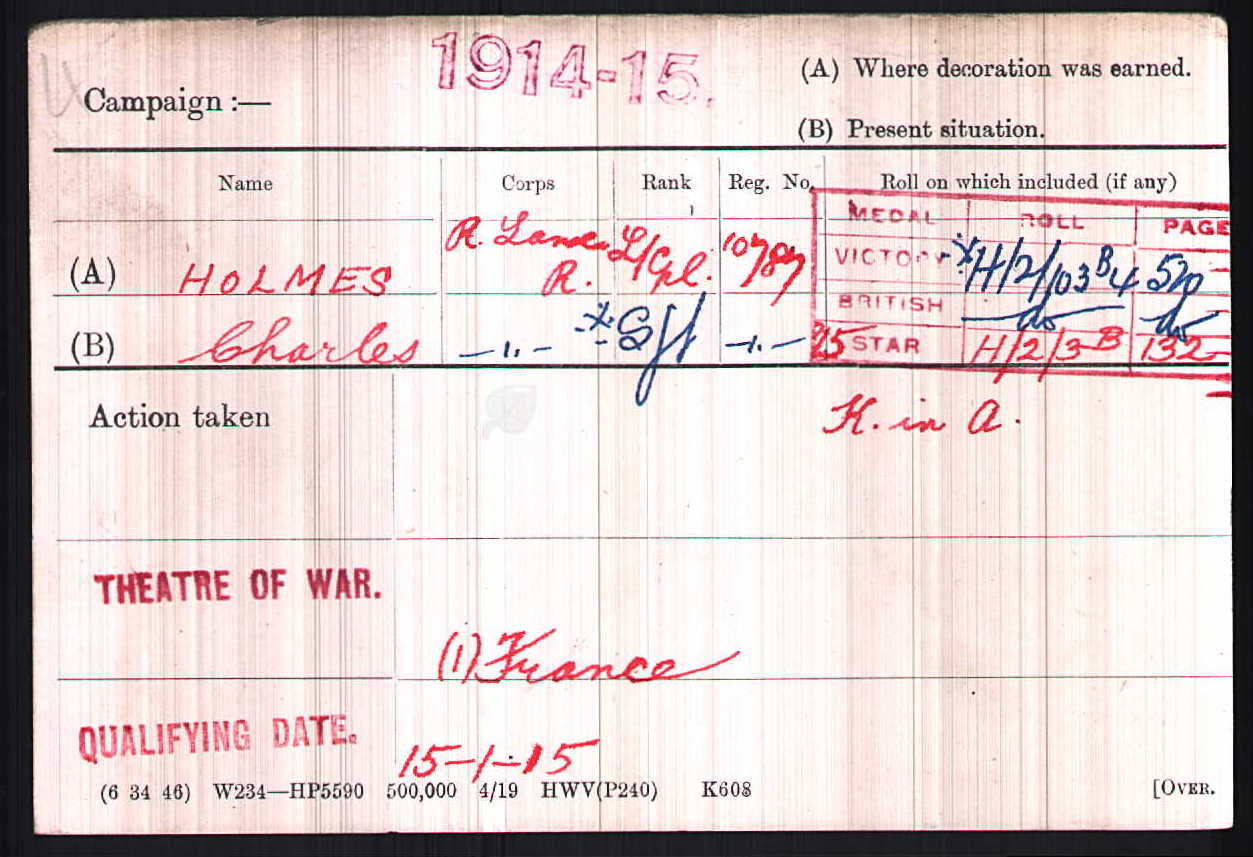 1914-15.
(A) Where decoration was earned.
Campaign :—
(B) Present situation.
Name Corps Rank Reg. No. Roll on which included (if any)
MEDAL ROLL PAGE
(A) HOLMES R. Lanc. R. L/Cpl. 10787 VICTORY *H/2/103 B4 520
BRITISH do do
(B) Charles —"— * Sjt —"— 15 STAR H/2/3 B 132
Action taken
K. in A.
THEATRE OF WAR.
(1) France
QUALIFYING DATE.
15-1-15
(6 34 46) W234—HP5590 500,000 4/19 HWV(P240) K608 [OVER.